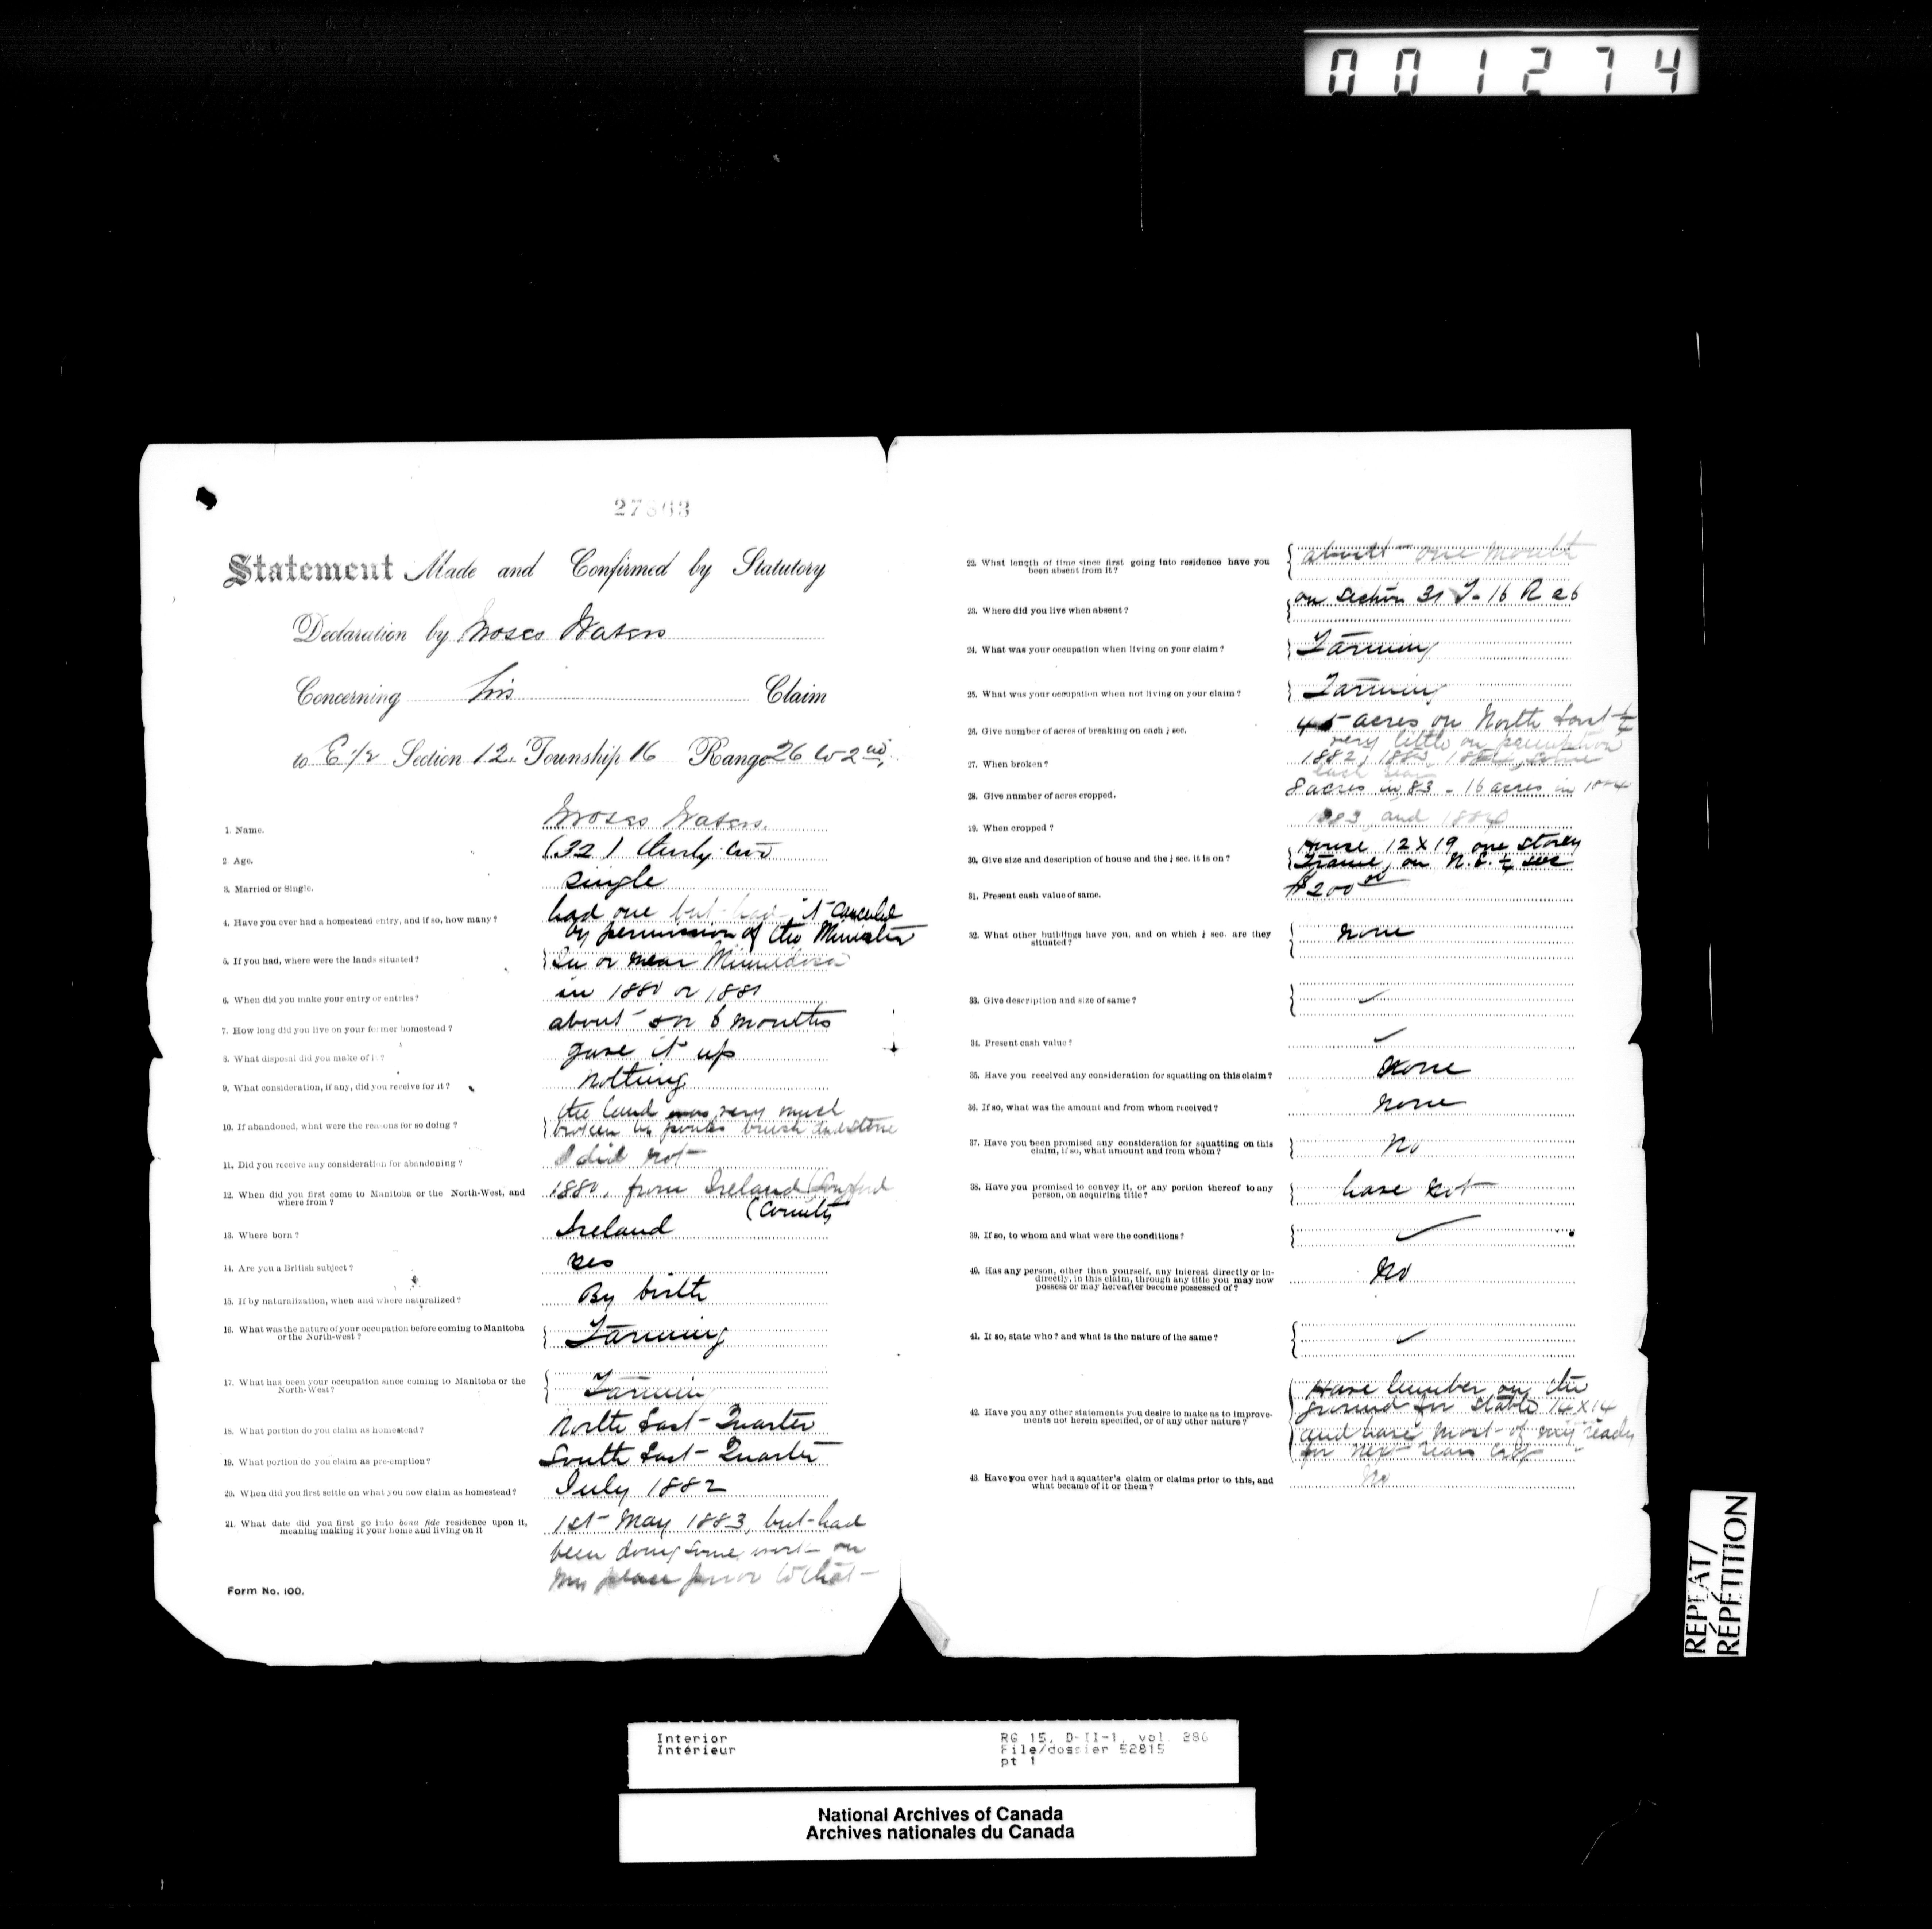 001274
27863
Statement Made and Confirmed by Statutory
Declaration by Moses Waters
Concerning his Claim
to E 1/2 Section 12. Township 16 Range 26 W 2nd
1. Name. Moses Waters.
2. Age. (32) thirty two
3. Married or Single. Single
4. Have you ever had a homestead entry, and if so, how many? had one but had it cancelled
by permission of the Minister
5. If you had, where were the lands situated? In or near Minnedosa
6. When did you make your entry or entries? in 1880 or 1881
7. How long did you live on your former homestead? about 5 or 6 months
8. What disposal did you make of it? gave it up
9. What consideration, if any, did you receive for it? Nothing
the land was very much
10. If abandoned, what were the reasons for so doing? broken by ponds brush and stone
11. Did you receive any consideration for abandoning? I did not
12. When did you first come to Manitoba or the North-West, and 1880, from Ireland (Longford
where from? (County
13. Where born? Ireland
14. Are you a British subject? yes
15. If by naturalization, when and where naturalized? By birth
16. What was the nature of your occupation before coming to Manitoba Farming
or the North-west?
17. What has been your occupation since coming to Manitoba or the Farming
North-West?
18. What portion do you claim as homestead? North East Quarter
19. What portion do you claim as pre-emption? South East Quarter
20. When did you first settle on what you now claim as homestead? July 1882
21. What date did you first go into bona fide residence upon it, 1st May 1883, but had
meaning making it your home and living on it
been doing some work on
my place prior to that
Form No. 100.
22. What length of time since first going into residence have you about one Month
been absent from it?
23. Where did you live when absent? on section 31 T. 16 R 26
24. What was your occupation when living on your claim? Farming
25. What was your occupation when not living on your claim? Farming
26. Give number of acres of breaking on each ¼ sec. 45 acres on North East ¼
very little on preemption
27. When broken? 1882, 1883, 1884, some
each year
28. Give number of acres cropped. 8 acres in 83 - 16 acres in 1884
29. When cropped? 1883, and 1884
30. Give size and description of house and the ¼ sec. it is on? House 12 X 19 one storey
Frame, on N.E. ¼ sec
31. Present cash value of same. $200 00
32. What other buildings have you, and on which ¼ sec. are they none
situated?
33. Give description and size of same? ✓
34. Present cash value? ✓
35. Have you received any consideration for squatting on this claim? None
36. If so, what was the amount and from whom received? none
37. Have you been promised any consideration for squatting on this No
claim, if so, what amount and from whom?
38. Have you promised to convey it, or any portion thereof to any have not
person, on acquiring title?
39. If so, to whom and what were the conditions? ✓
40. Has any person, other than yourself, any interest directly or in- No
directly, in this claim, through any title you may now
possess or may hereafter become possessed of?
41. If so, state who? and what is the nature of the same? ✓
Have lumber on the
42. Have you any other statements you desire to make as to improve- ground for stable 14 X 14
ments not herein specified, or of any other nature?
and have most of my ready
for next years crop
43. Have you ever had a squatter's claim or claims prior to this, and No
what became of it or them?
REPEAT/
RÉPÉTITION
Interior RG 15, D-II-1, vol. 286
Intérieur File/dossier 52815
pt 1
National Archives of Canada
Archives nationales du Canada